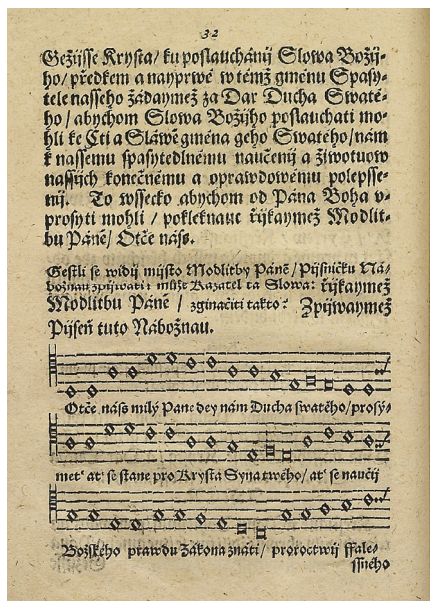 32
Gežijsse Krysta/ ku poslauchánij Slowa Božij-
ho/ předkem a nayprwé w témž gménu Spasy-
tele nasseho žádaymež za Dar Ducha Swaté-
ho/ abychom Slowa Božijho poslauchati mo-
hli ke Cti a Sláwě gména geho Swatého/ nám
k nassemu spasytedlnému naučenij a žiwotuow
nassijch konečnému a oprawdowému polepsse-
nij. To wssecko abychom od Pána Boha v-
prosyti mohli/ pokleknauc řijkaymež Modlit-
bu Páně/ Otče nás.
Gestli se widij mijsto Modlitby Páně/ Pijsničku Ná-
božnau zpijwati: může Kazatel ta Slowa: řijkaymež
Modlitbu Páně/ zginačiti takto: Zpijwaymež
Pijseň tuto Nábožnau.
Otče nás milý Pane dey nám Ducha swatého/ prosý-
met' at' se stane pro Krysta Syna twého/ at' se naučij
Božského prawdu Zákona znáti/ proroctwij ffale-
ssného